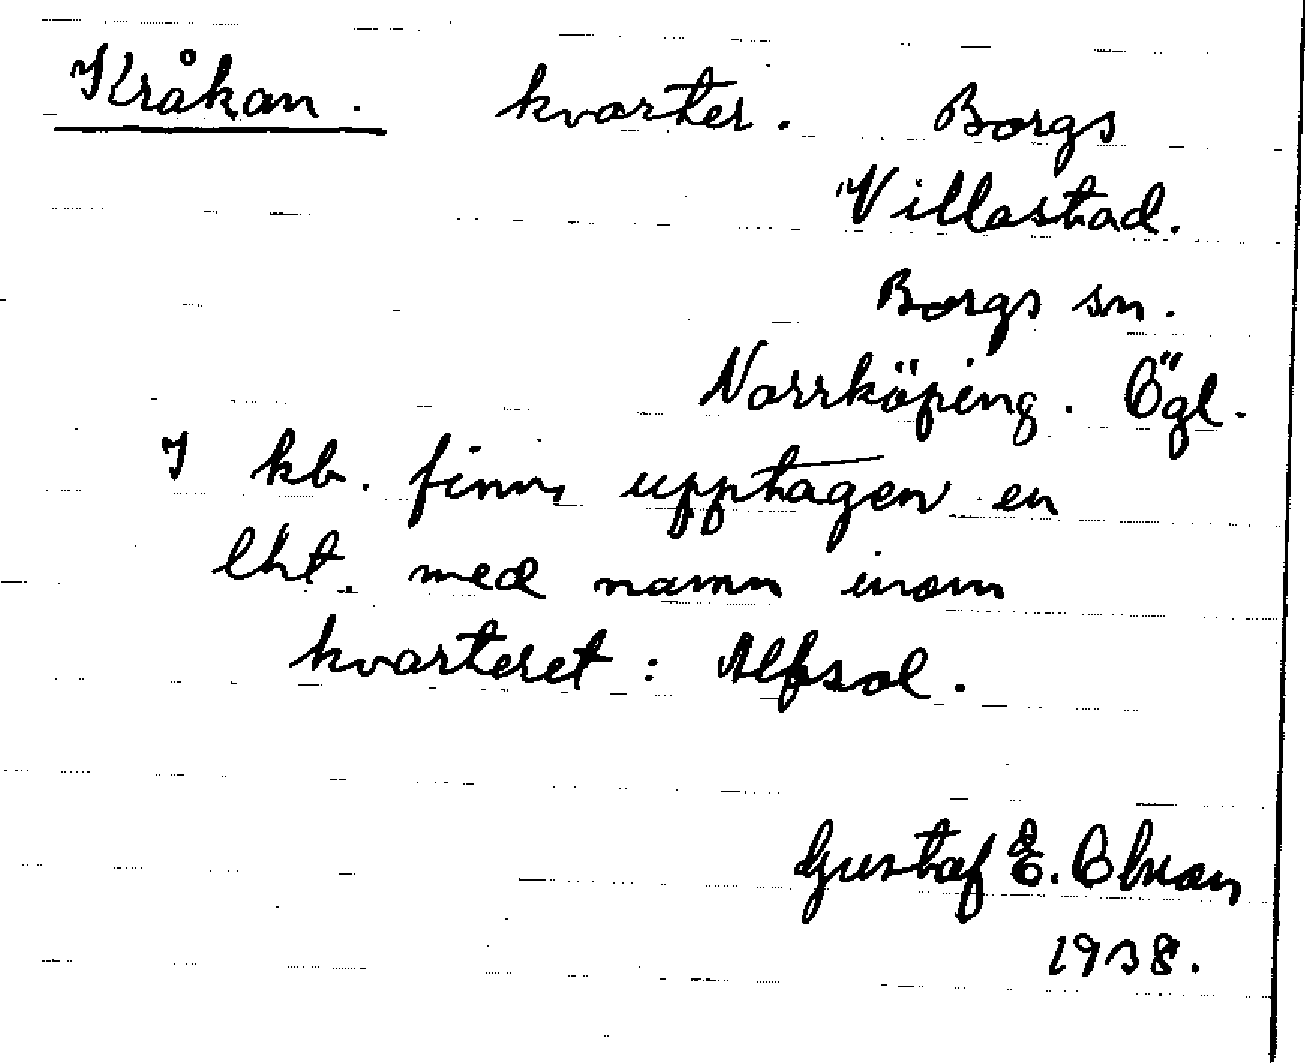 Kråkan. kvarter. Borgs
Villastad.
Borgs sn.
Norrköping. Ögl.
I kb. finns upptagen en
lht. med namn inom
kvarteret: Alfsol.
Gustaf E. Olson
1938.